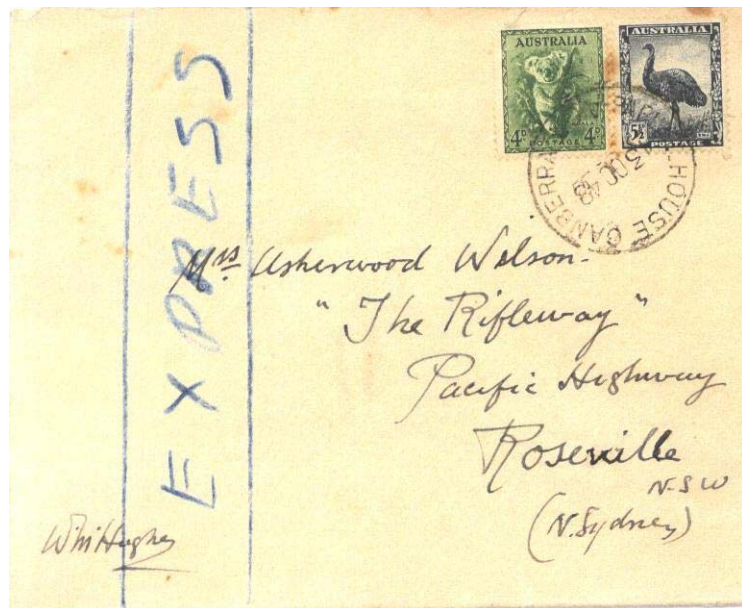 EXPRESS
AUSTRALIA
4D 4D
POSTAGE
AUSTRALIA
5½D
EMU
POSTAGE
HOUSE CANBERRA
OC 48
Mrs Usherwood Wilson.
"The Rifleway"
Pacific Highway
Roseville
N.S.W
(N. Sydney)
WmHughes